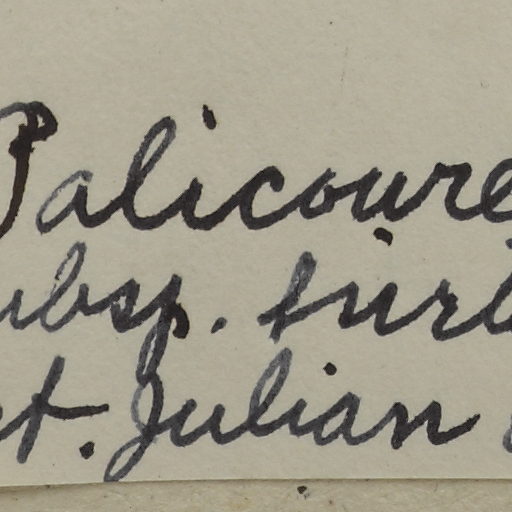 Palicoure
ubsp.
det. Julian